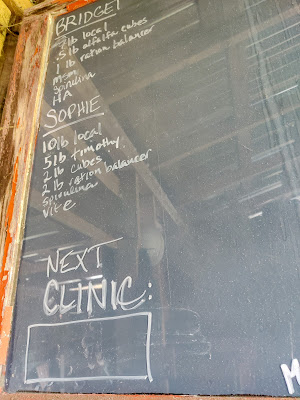 BRIDGET
lb local
.5 lb alfalfa cubes
1 lb ration balancer
msm
spirulina
HA
SOPHIE
10lb local
5lb timothy
2 lb cubes
2 lb ration balancer
spirulina
vit e
NEXT
CLINIC:
M